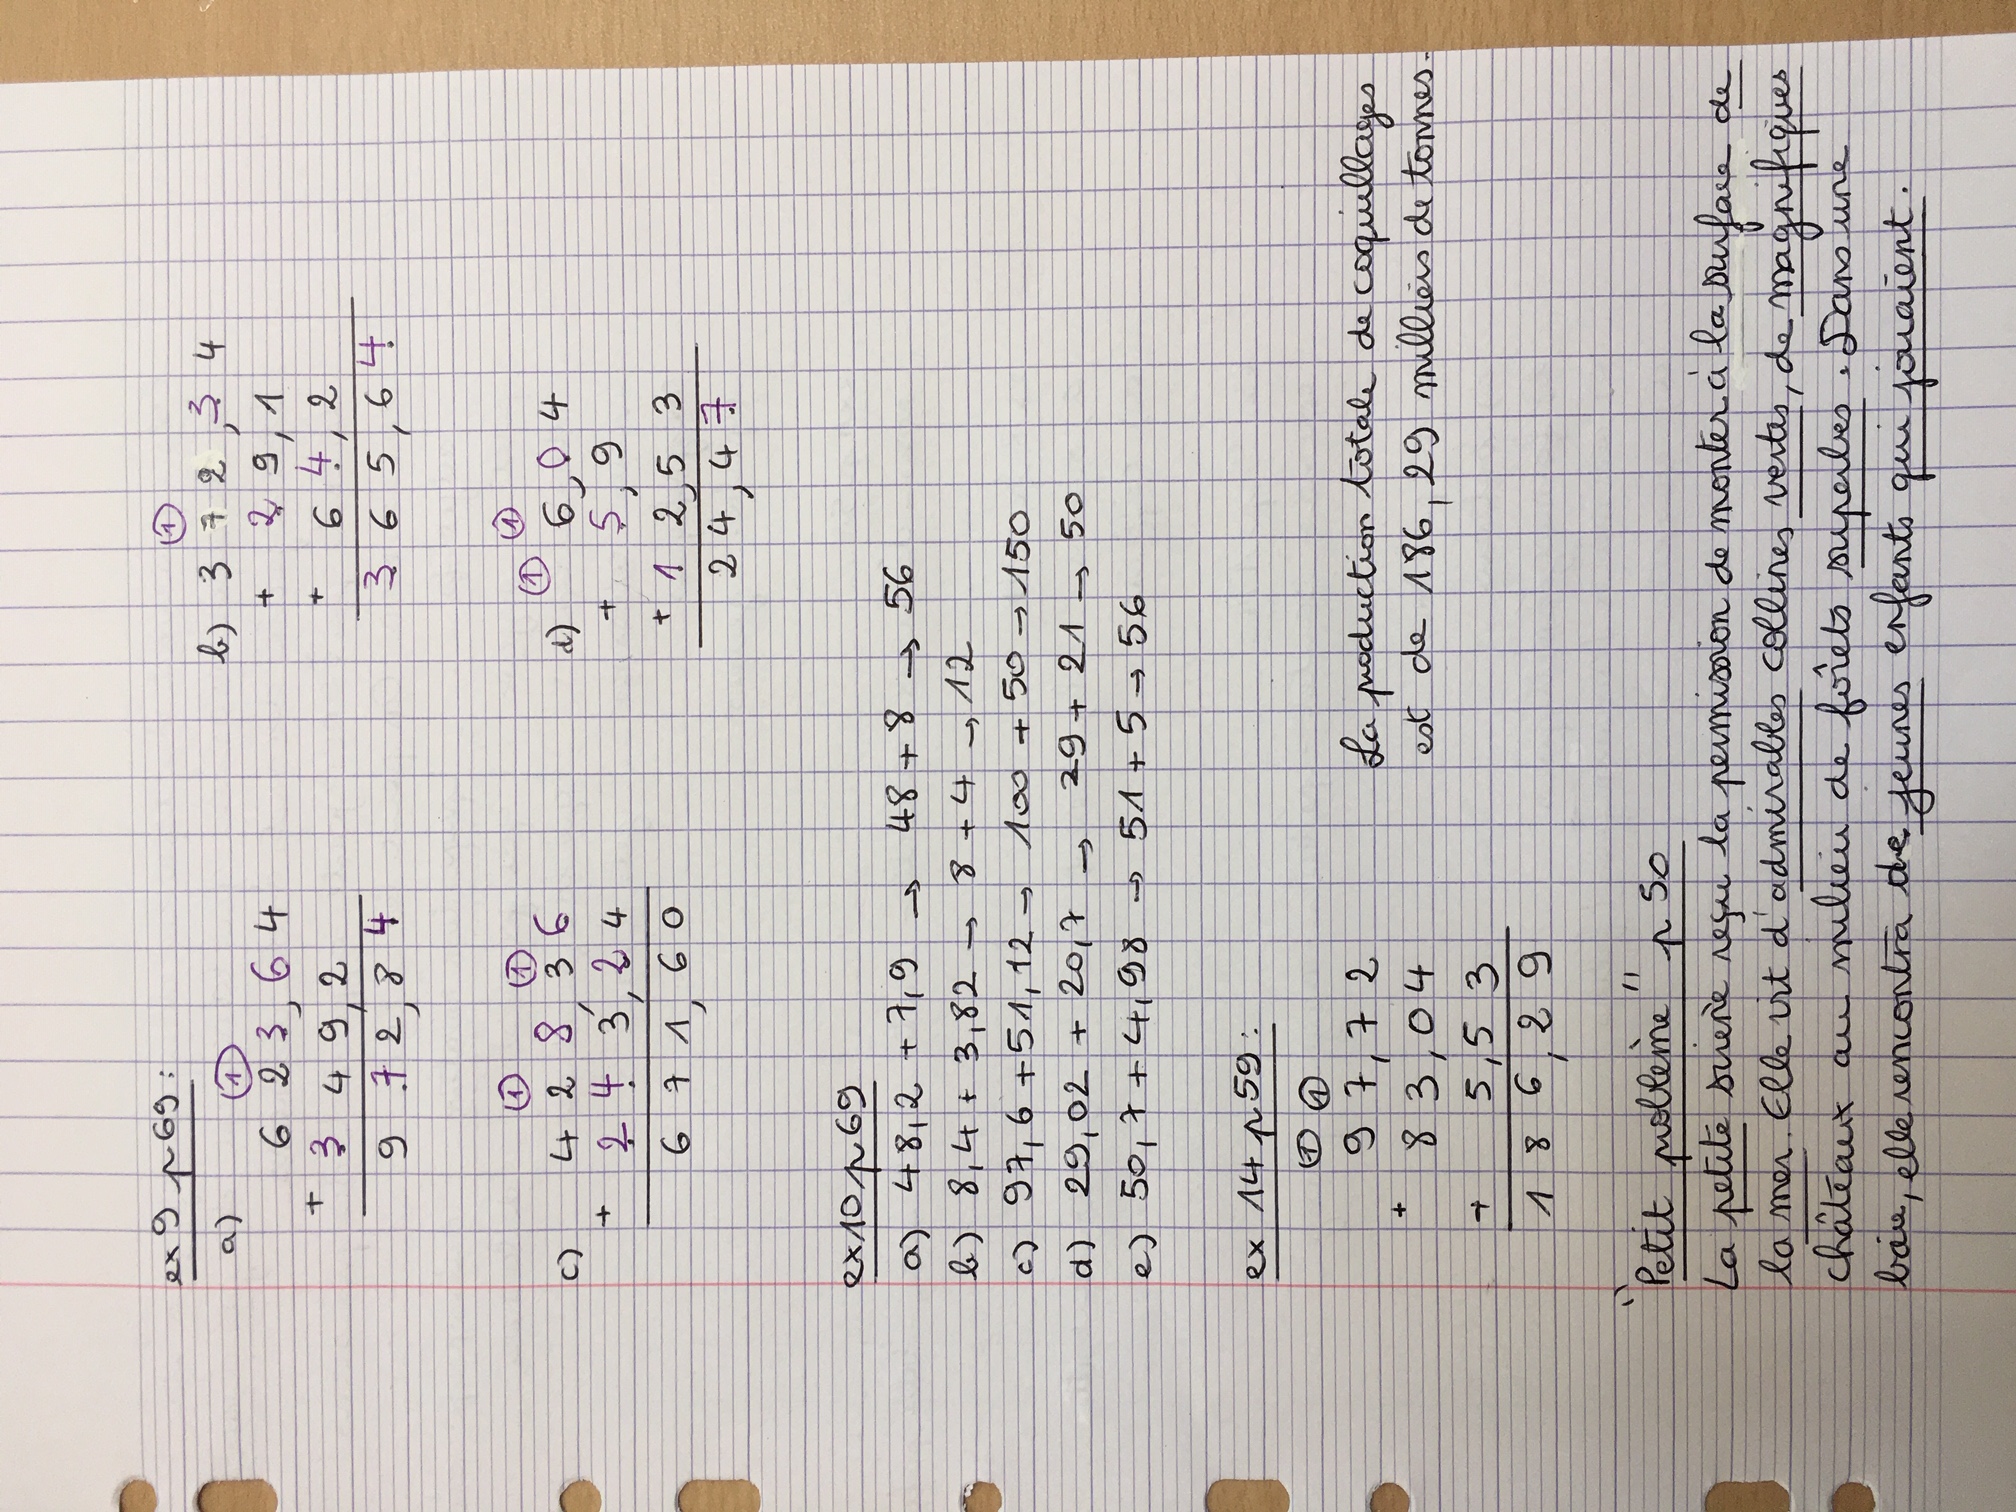 ex 9 p 69 :
a)
①
6 2 3,6 4
+ 3 4 9,2
9 7 2,8 4
b)
①
3 7 2,3 4
+ 2 9,1
+ 6 4,2
3 6 5,6 4
c)
① ①
4 2 8,3 6
+ 2 4 3,2 4
6 7 1,6 0
d)
① ①
6,0 4
+ 5,9
+ 1 2,5 3
2 4,4 7
ex 10 p 69
a) 48,2 + 7,9 → 48 + 8 → 56
b) 8,4 + 3,82 → 8 + 4 → 12
c) 97,6 + 51,12 → 100 + 50 → 150
d) 29,02 + 20,7 → 29 + 21 → 50
e) 50,7 + 4,98 → 51 + 5 → 56
ex 14 p 59 :
① ①
9 7,7 2
+ 8 3,0 4
+ 5,5 3
1 8 6,2 9
La production totale de coquillages
est de 186,29 milliers de tonnes.
"Petit problème" p 50
La petite sirène reçu la permission de monter à la surface de
la mer. Elle vit d'admirables collines vertes, de magnifiques
châteaux au milieu de fôrets superbes. Dans une
baie, elle rencontra de jeunes enfants qui jouaient.